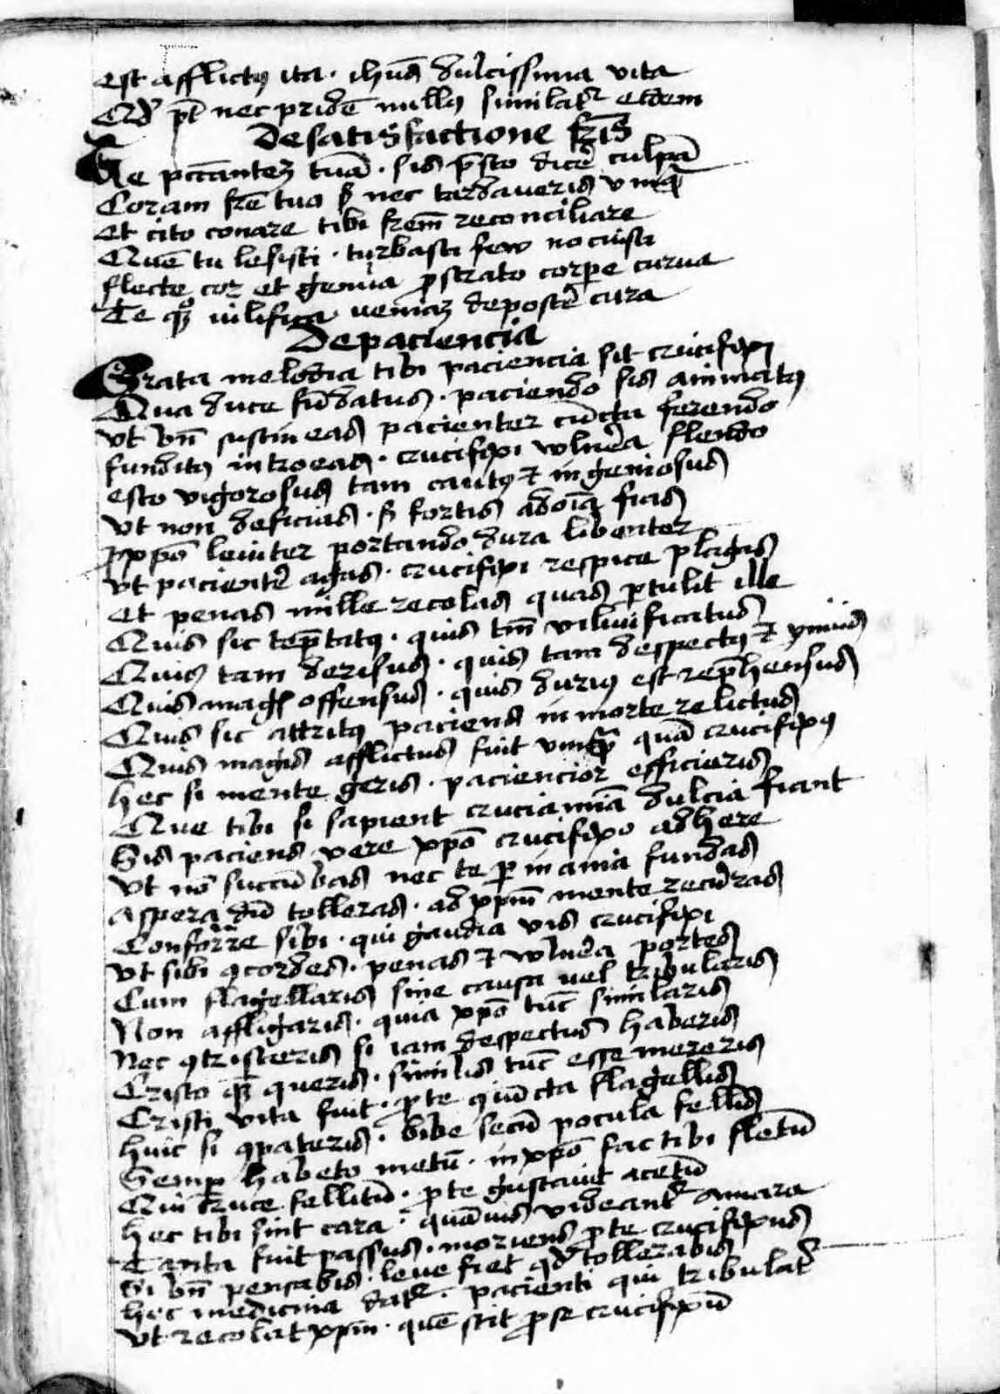 est afflictꝰ ita · ihūs dulcissima vita
Qđ pt nec pridē nullꝰ similatr eidem
De satisfactione fr̄is
Te pccantez tuā · sis p̄sto dicē culpā
Coram fr̄e tuo ſ nec tardaueris vmq̄
Et cito conare tibi frēm reconciliare
Quē tu lesisti · turbasti seu nocuisti
flecte cor et genua ꝓstrato corpe curua
Te qꝫ vilifica veniaꝫ deposcē cura
De paciencia
Grata melodia tibi paciencia sit crucifixi
Qua duce fūdatus · paciendo sis animatꝰ
Vt bn̄ sustineas pacienter cūcta ferendo
funditꝰ introeas · crucifixi vlnēa flendo
esto vigorosus tam cautꝰ et ingeniosus
Vt non deficias · ſ fortis ad oīa fias
ꝓ xpō leuiter portando dura libenter
Vt pacientē agas · crucifixi respice plagas
Et penas mille recolas quas ꝑtulit ille
Quis sic tēptatꝰ · quis tm̄ viliuificatus
Quis tam derisus · quis tam despectꝰ et
Quis magꝭ offensus · quis duriꝰ est rep̄hensus
Quis sic attritꝰ paciens in morte relictus
Quis magis afflictus fuit vmq̄ quā crucifixꝰ
hec si mente geris · paciencior efficieris
Que tibi si sapient cruciamīa dulcia fiant
Sis paciens vere xpō crucifixo adhere
Vt nō succūbas nec te ꝑ inania fundas
Aspera dū tolleras · ad xpm̄ mente recurras
Conforr̄e sibi · qui gaudia vis crucifixi
Vt sibi ꝯcordes · penas et vlnēa portes
Cum flagellaris sine causa uel tribularis
Non affligaris · quia xpō tūc similaris
Nec ꝯtristeris si iam despectus haberis
Cristo qꝫ queris · similis tūc esse mereris
Cristi vita fuit · ꝓ te ꝯiūcta flagellis
huic si ꝯpateris · bibe secū pocula fellis
Semꝑ habeto metū · in xpō fac tibi fletū
Qui cruce fellitū · ꝓ te gustauit acetū
hec tibi sint cara · quāuis videantr amara
Tanta fuit passus · moriens ꝓ te crucifixus
Si bn̄ pensabis · leue fiet qđ tollerabis
hec medicina datr · pacienti qui tribulatr
Vt recolat xpm̄ · quē scit ꝓ se crucifixū